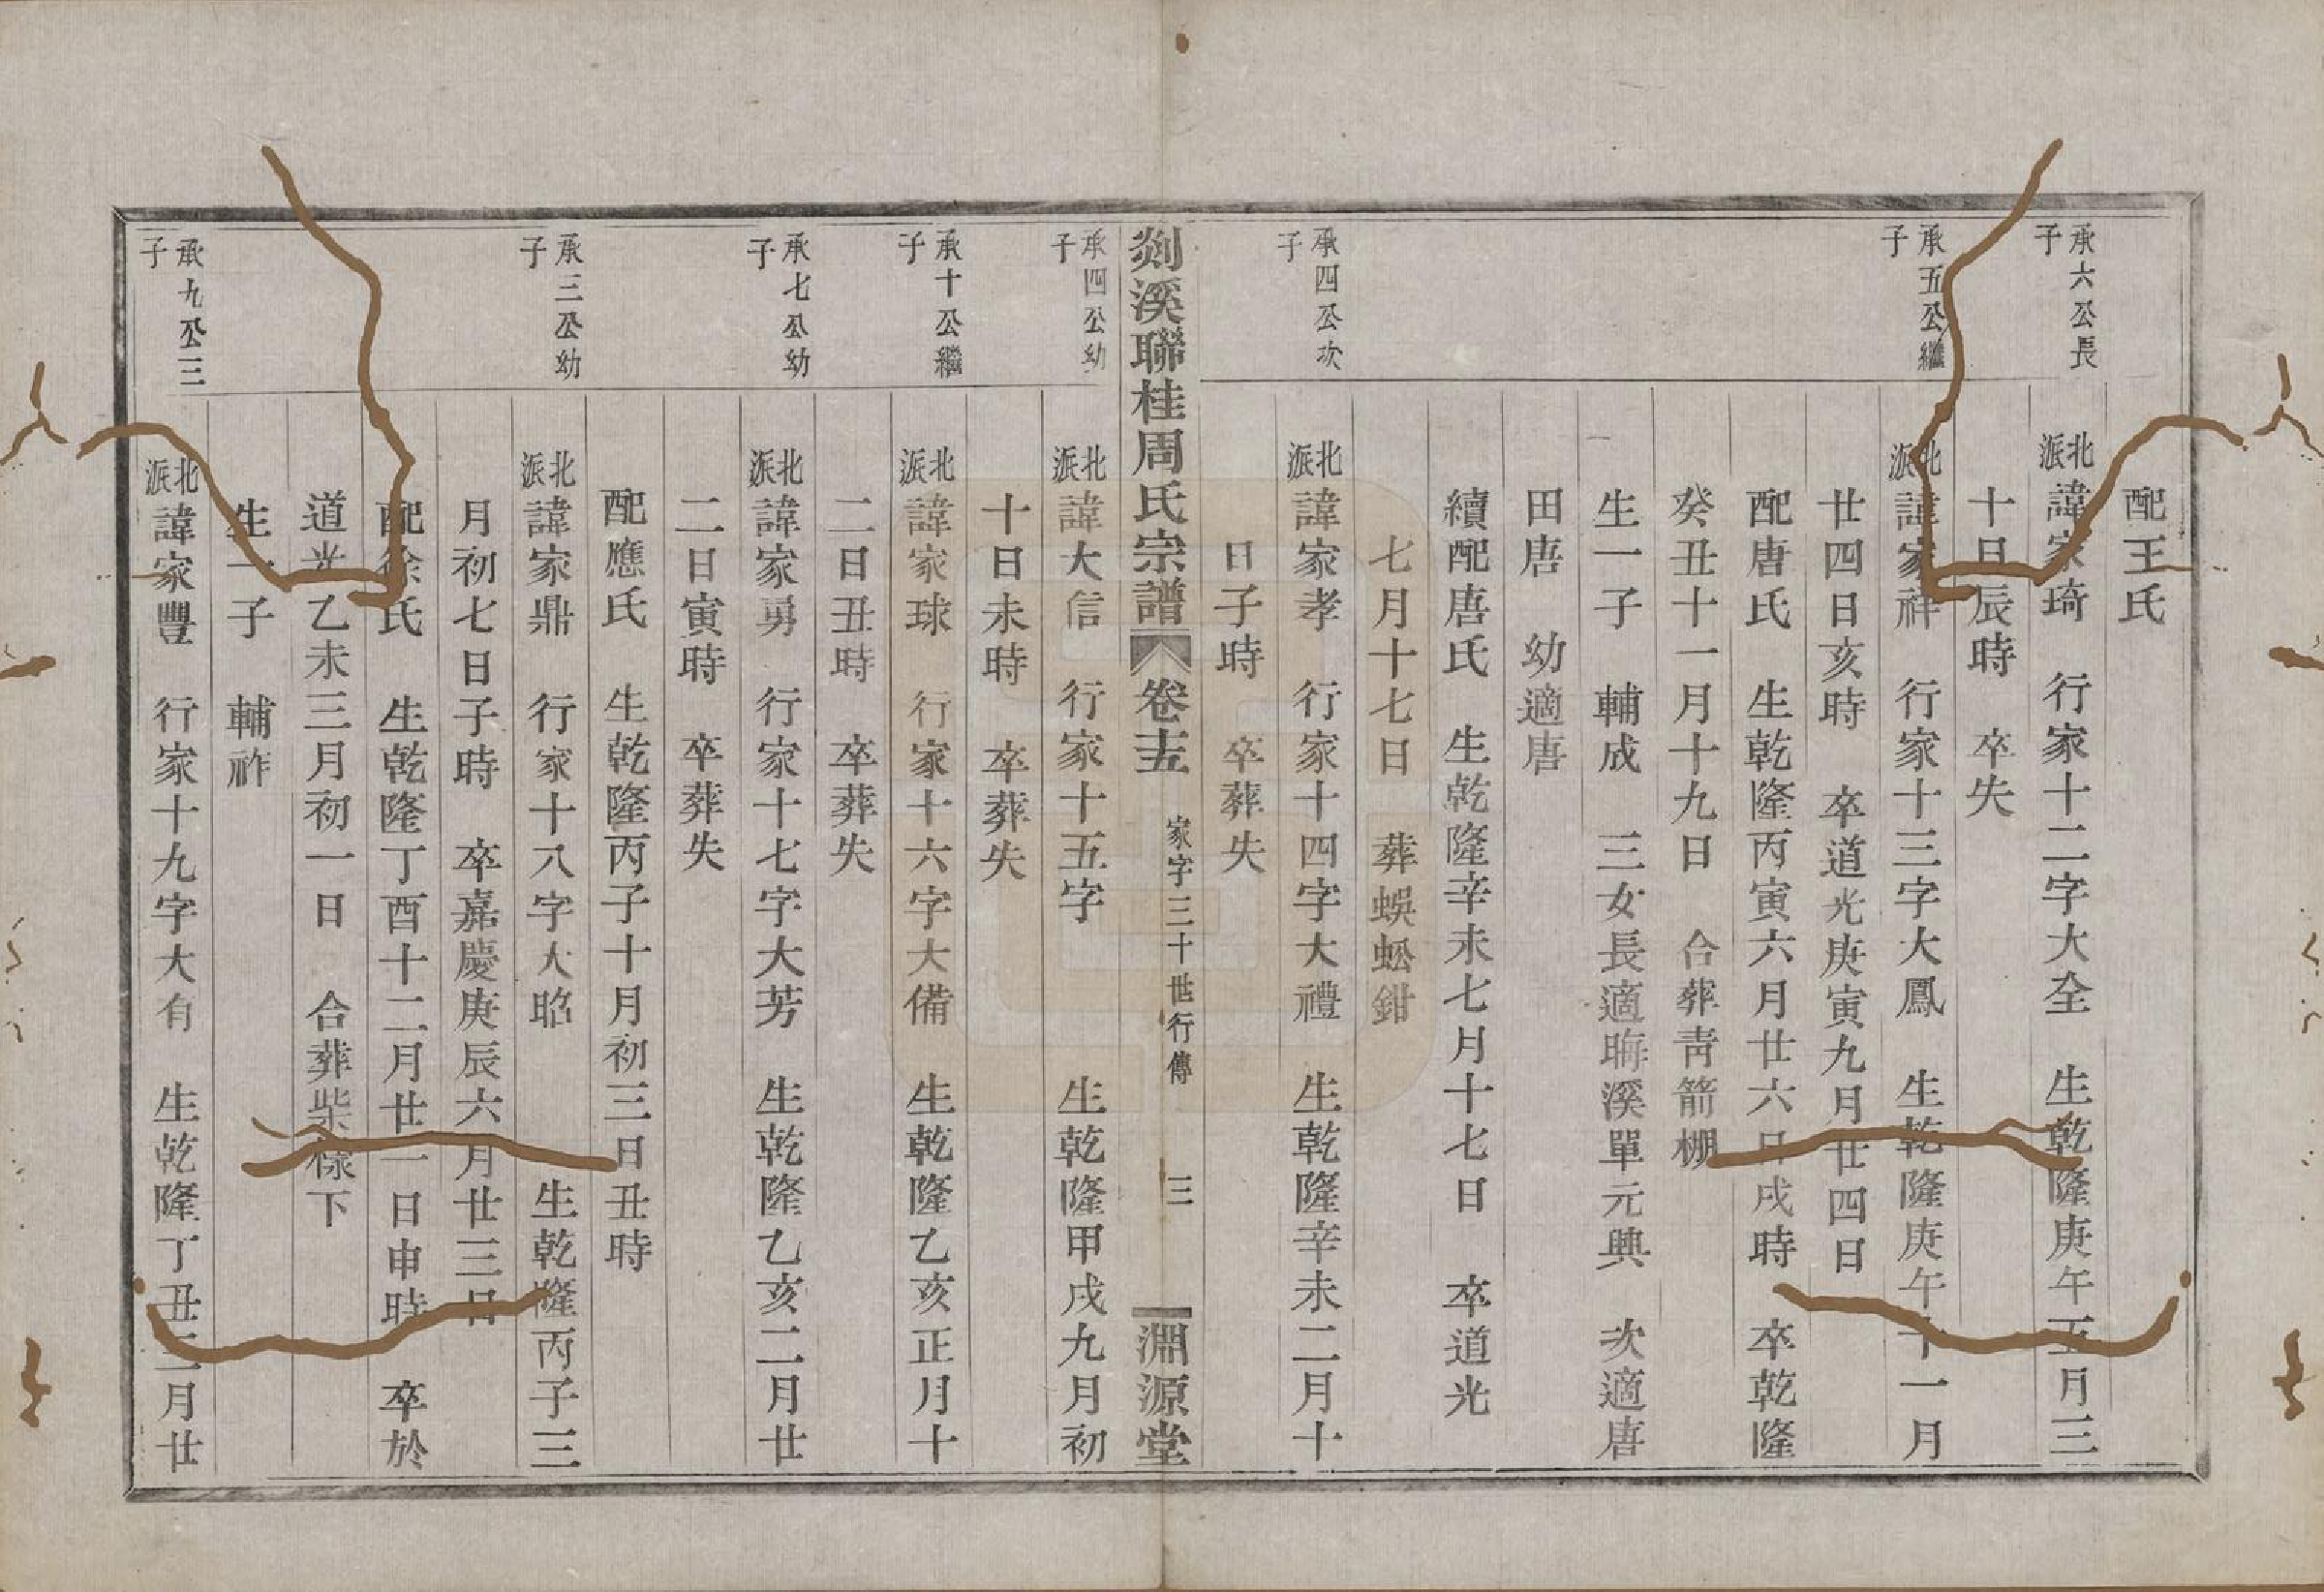 配王氏
承六公長子
北派 諱家琦 行家十二字大全 生乾隆庚午五月三
十日辰時 卒失
承五公繼子
北派 諱家祥 行家十三字大鳳 生乾隆庚午十一月
廿四日亥時 卒道光庚寅九月廿四日
配唐氏 生乾隆丙寅六月廿六日戌時 卒乾隆
癸丑十一月十九日 合葬靑箭棚
生一子 輔成 三女長適晦溪單元興 次適唐
田唐 幼適唐
續配唐氏 生乾隆辛未七月十七日 卒道光
七月十七日 葬蜈蚣鉗
承四公次子
北派 諱家孝 行家十四字大禮 生乾隆辛未二月十
日子時 卒葬失
剡溪聯桂周氏宗譜 卷十五 家字三十世行傳 三 淵源堂
承四公幼子
北派 諱大信 行家十五字 生乾隆甲戌九月初
十日未時 卒葬失
承十公繼子
北派 諱家球 行家十六字大備 生乾隆乙亥正月十
二日丑時 卒葬失
承七公幼子
北派 諱家勇 行家十七字大芳 生乾隆乙亥二月廿
二日寅時 卒葬失
配應氏 生乾隆丙子十月初三日丑時
承三公幼子
北派 諱家鼎 行家十八字大 生乾隆丙子三
月初七日子時 卒嘉慶庚辰六月廿三日
配徐氏 生乾隆丁酉十二月廿一日申時 卒於
道光乙未三月初一日 合葬柴樣下
生一子 輔祚
承九公三子
北派 諱家豐 行家十九字大有 生乾隆丁丑二月廿